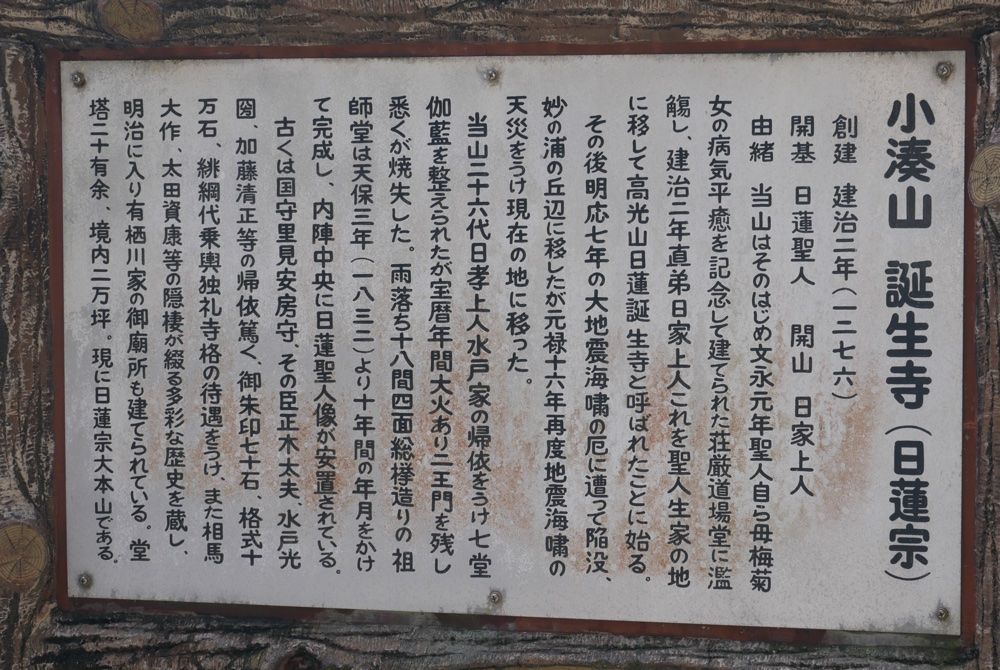 小湊山 誕生寺(日蓮宗)
創建 建治二年(一二七六)
開基 日蓮聖人 開山 日家上人
由緒 当山はそのはじめ文永元年聖人自ら母梅菊
女の病気平癒を記念して建てられた荘厳道場堂に濫
觴し、建治二年直弟日家上人これを聖人生家の地
に移して高光山日蓮誕生寺と呼ばれたことに始る。
その後明応七年の大地震海嘯の厄に遭って陥没、
妙の浦の丘辺に移したが元禄十六年再度地震海嘯の
天災をうけ現在の地に移った。
当山二十六代日孝上人水戸家の帰依をうけ七堂
伽藍を整えられたが宝暦年間大火あり二王門を残し
悉くが焼失した。雨落ち十八間四面総欅造りの祖
師堂は天保三年(一八三二)より十年間の年月をかけ
て完成し、内陣中央に日蓮聖人像が安置されている。
古くは国守里見安房守、その臣正木太夫、水戸光
圀、加藤清正等の帰依篤く、御朱印七十石、格式十
万石、緋綱代乗輿独礼寺格の待遇をうけ、また相馬
大作、太田資康等の隠棲が綴る多彩な歴史を蔵し、
明治に入り有栖川家の御廟所も建てられている。堂
塔二十有余、境内二万坪。現に日蓮宗大本山である。